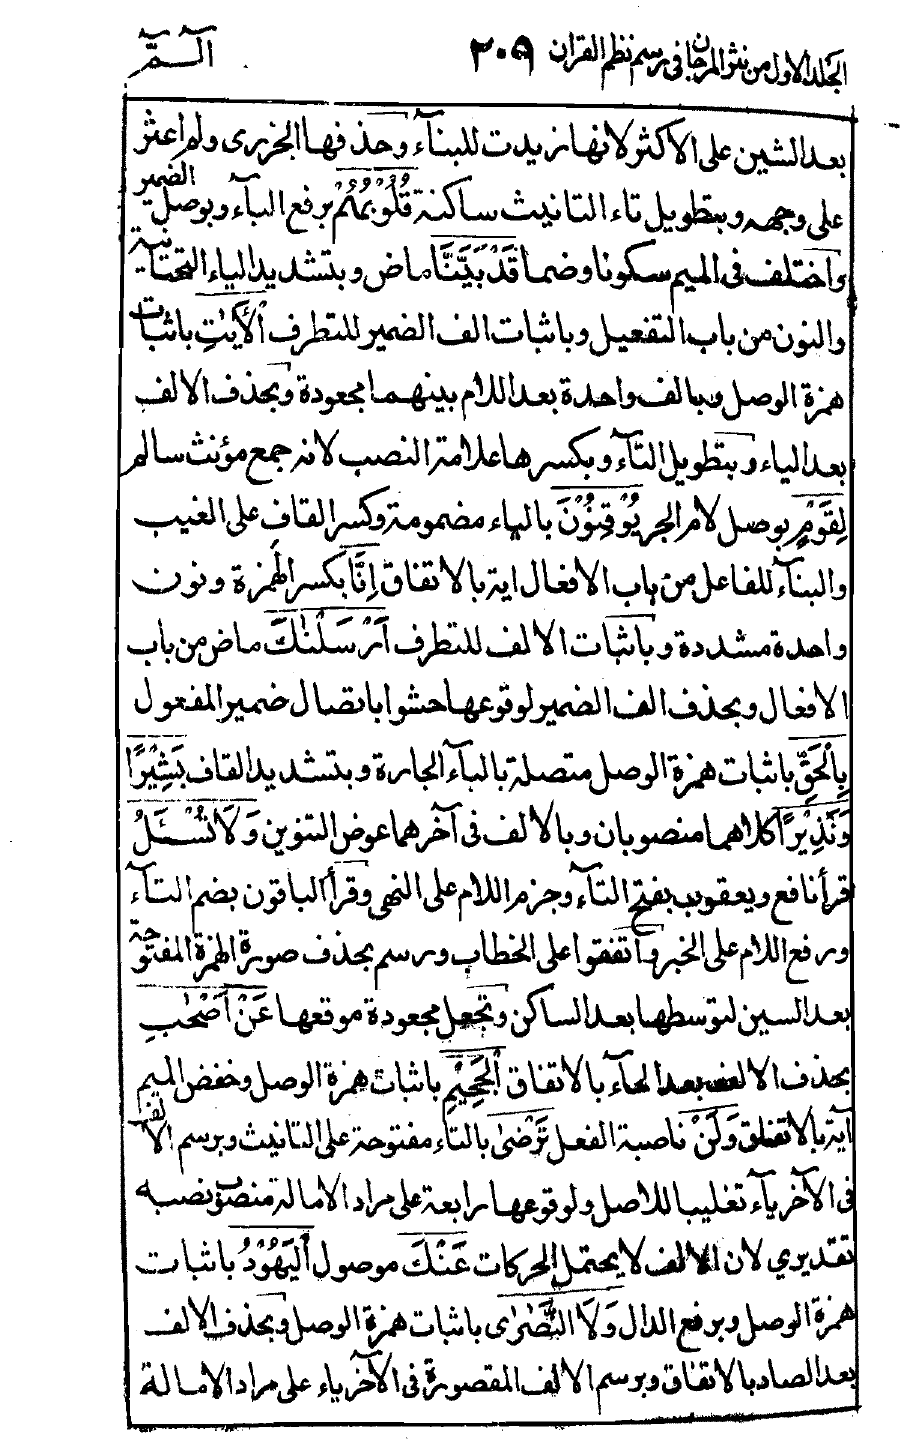 الجلد الاول من نثر المرجان في رسم نظم القران ٢٠٥ الٓـمّٓ
بعد الشين على الاكثر لانها زيدت للبنآء وحذفها الجزرى ولم اعثر
على وجهه وبتطويل تاء التانيث ساكنة قُلُوْبُهُمْ برفع البآء وبوصل الضمير
واختلف فى الميم سكونا وضما قَدْ بَيَّنَّا ماض وبتشديد الياء التحتانية
والنون من باب التفعيل وباثبات الف الضمير للتطرف الْاٰيٰتِ باثبات
همزة الوصل وبالف واحدة بعد اللام بينهما مجعودة وبحذف الالف
بعد الياء وبتطويل التآء وبكسرها علامة النصب لانه جمع مؤنث سالم
لِقَوْمٍ بوصل لام الجر يُوْقِنُوْنَ بالياء مضمومة وكسر القاف على الغيب
والبنآء للفاعل من باب الافعال اية بالاتفاق اِنَّا بكسر الهمزة ونون
واحدة مشددة وباثبات الالف للتطرف اَرْسَلْنٰكَ ماض من باب
الافعال وبحذف الف الضمير لوقوعها حشوا باتصال ضمير المفعول
بِالْحَقِّ باثبات همزة الوصل متصلة بالبآء الجارة وبتشديد القاف بَشِيْرًا
وَّنَذِيْرًا كلاهما منصوبان وبالالف فى آخرهما عوض التنوين وَلَا تُسْـَٔلُ
قرأ نافع ويعقوب بفتح التآء وجزم اللام على النهى وقرأ الباقون بضم التآء
ورفع اللام على الخبر واتفقوا على الخطاب ورسم بحذف صورة الهمزة المفتوحة
بعد السين لتوسطها بعد الساكن وتجعل مجعودة موقعها عَنْ اَصْحٰبِ
بحذف الالف بعد الحآء بالاتفاق الْجَحِيْمِ باثبات همزة الوصل وخفض الميم
آية بالاتفاق وَلَنْ ناصبة الفعل تَرْضٰى بالتاء مفتوحة على التانيث وبرسم الالف
فى الآخر يآء تغليبا للاصل ولوقوعها رابعة على مراد الامالة منصوب نصبه
تقديري لان الالف لا يحتمل الحركات عَنْكَ موصول الْيَهُوْدُ باثبات
همزة الوصل وبرفع الدال وَلَا النَّصٰرٰى باثبات همزة الوصل وبحذف الالف
بعد الصاد بالاتفاق وبرسم الالف المقصورة فى الآخر ياء على مراد الامالة